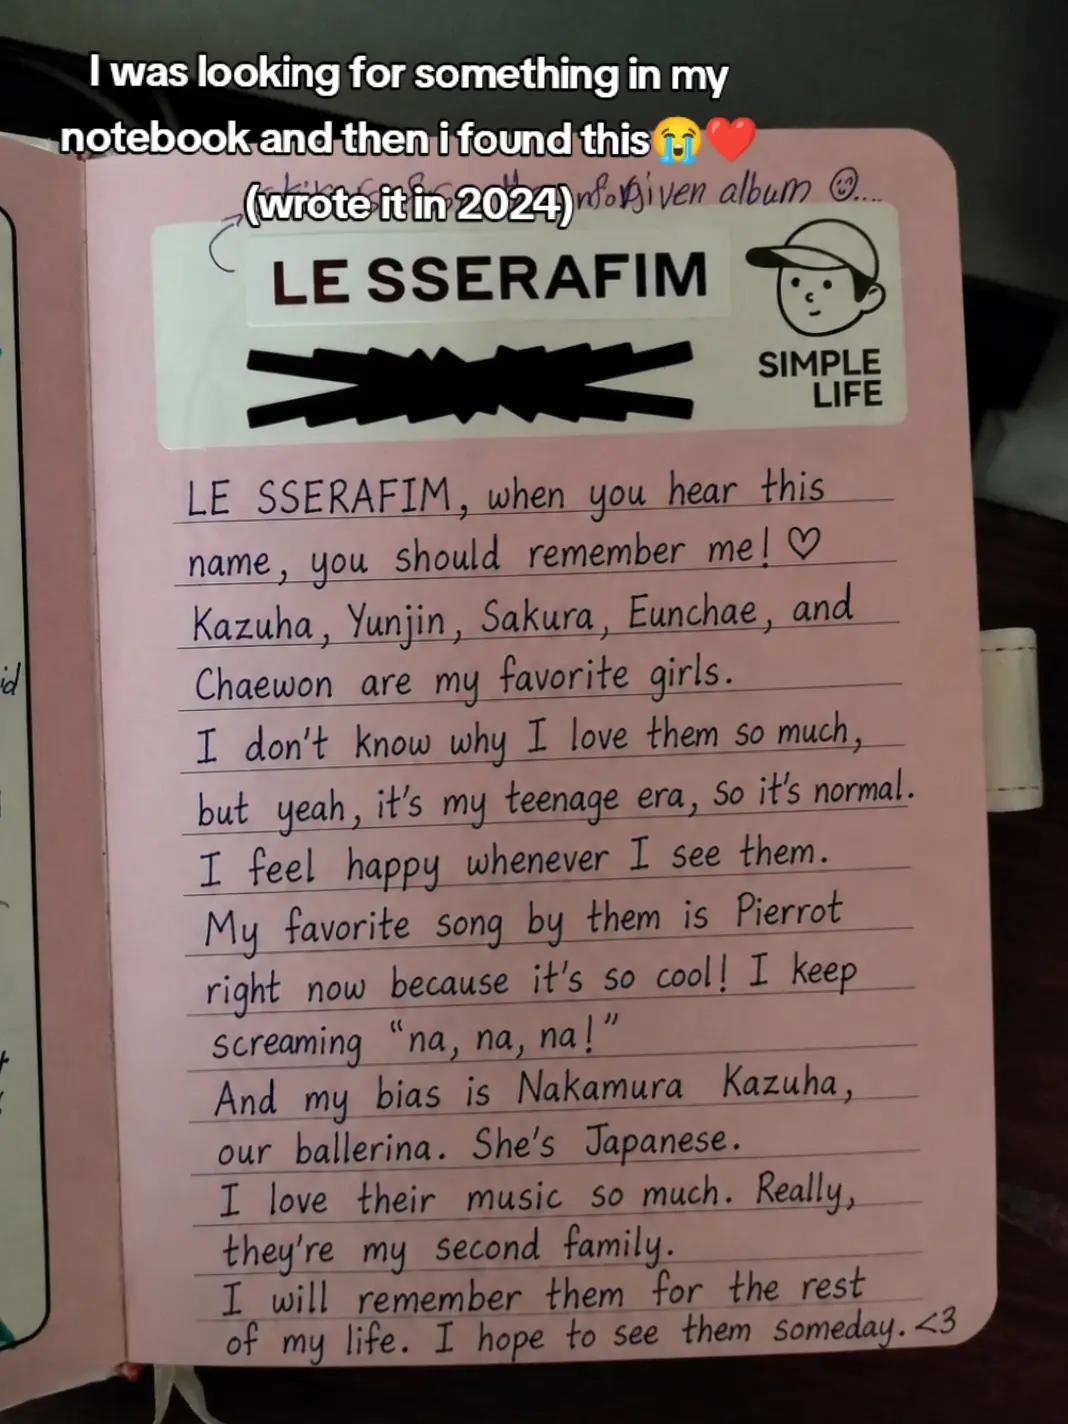 I was looking for something in my
notebook and then i found this😭❤️
(wrote it in 2024)
album ☺....
LE SSERAFIM
SIMPLE
LIFE
LE SSERAFIM, when you hear this
name, you should remember me! ♡
Kazuha, Yunjin, Sakura, Eunchae, and
Chaewon are my favorite girls.
I don't know why I love them so much,
but yeah, it's my teenage era, so it's normal.
I feel happy whenever I see them.
My favorite song by them is Pierrot
right now because it's so cool! I keep
screaming "na, na, na!"
And my bias is Nakamura Kazuha,
our ballerina. She's Japanese.
I love their music so much. Really,
they're my second family.
I will remember them for the rest
of my life. I hope to see them someday. <3